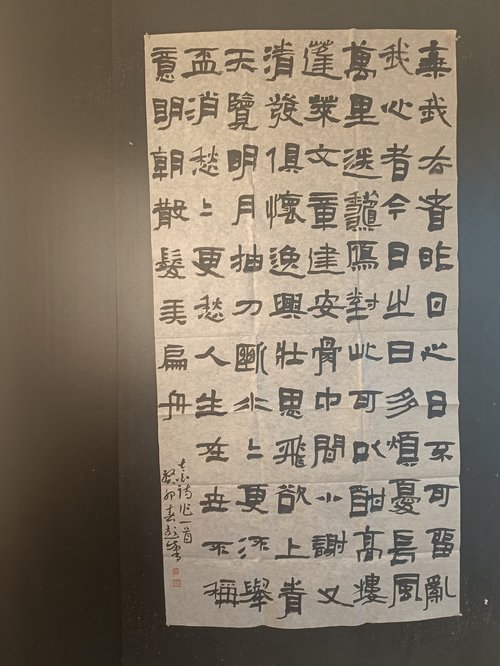 棄我去者昨日之日不可留亂
我心者今日之日多煩憂長風
萬里送龝鴈對此可以酣高樓
蓬萊文章建安骨中間小謝又
清發俱懷逸興壯思飛欲上青
天覽明月抽刀斷水〻更流舉
盃消愁〻更愁人生在世不稱
意明朝散髮弄扁舟
太白詩作一首
癸卯春